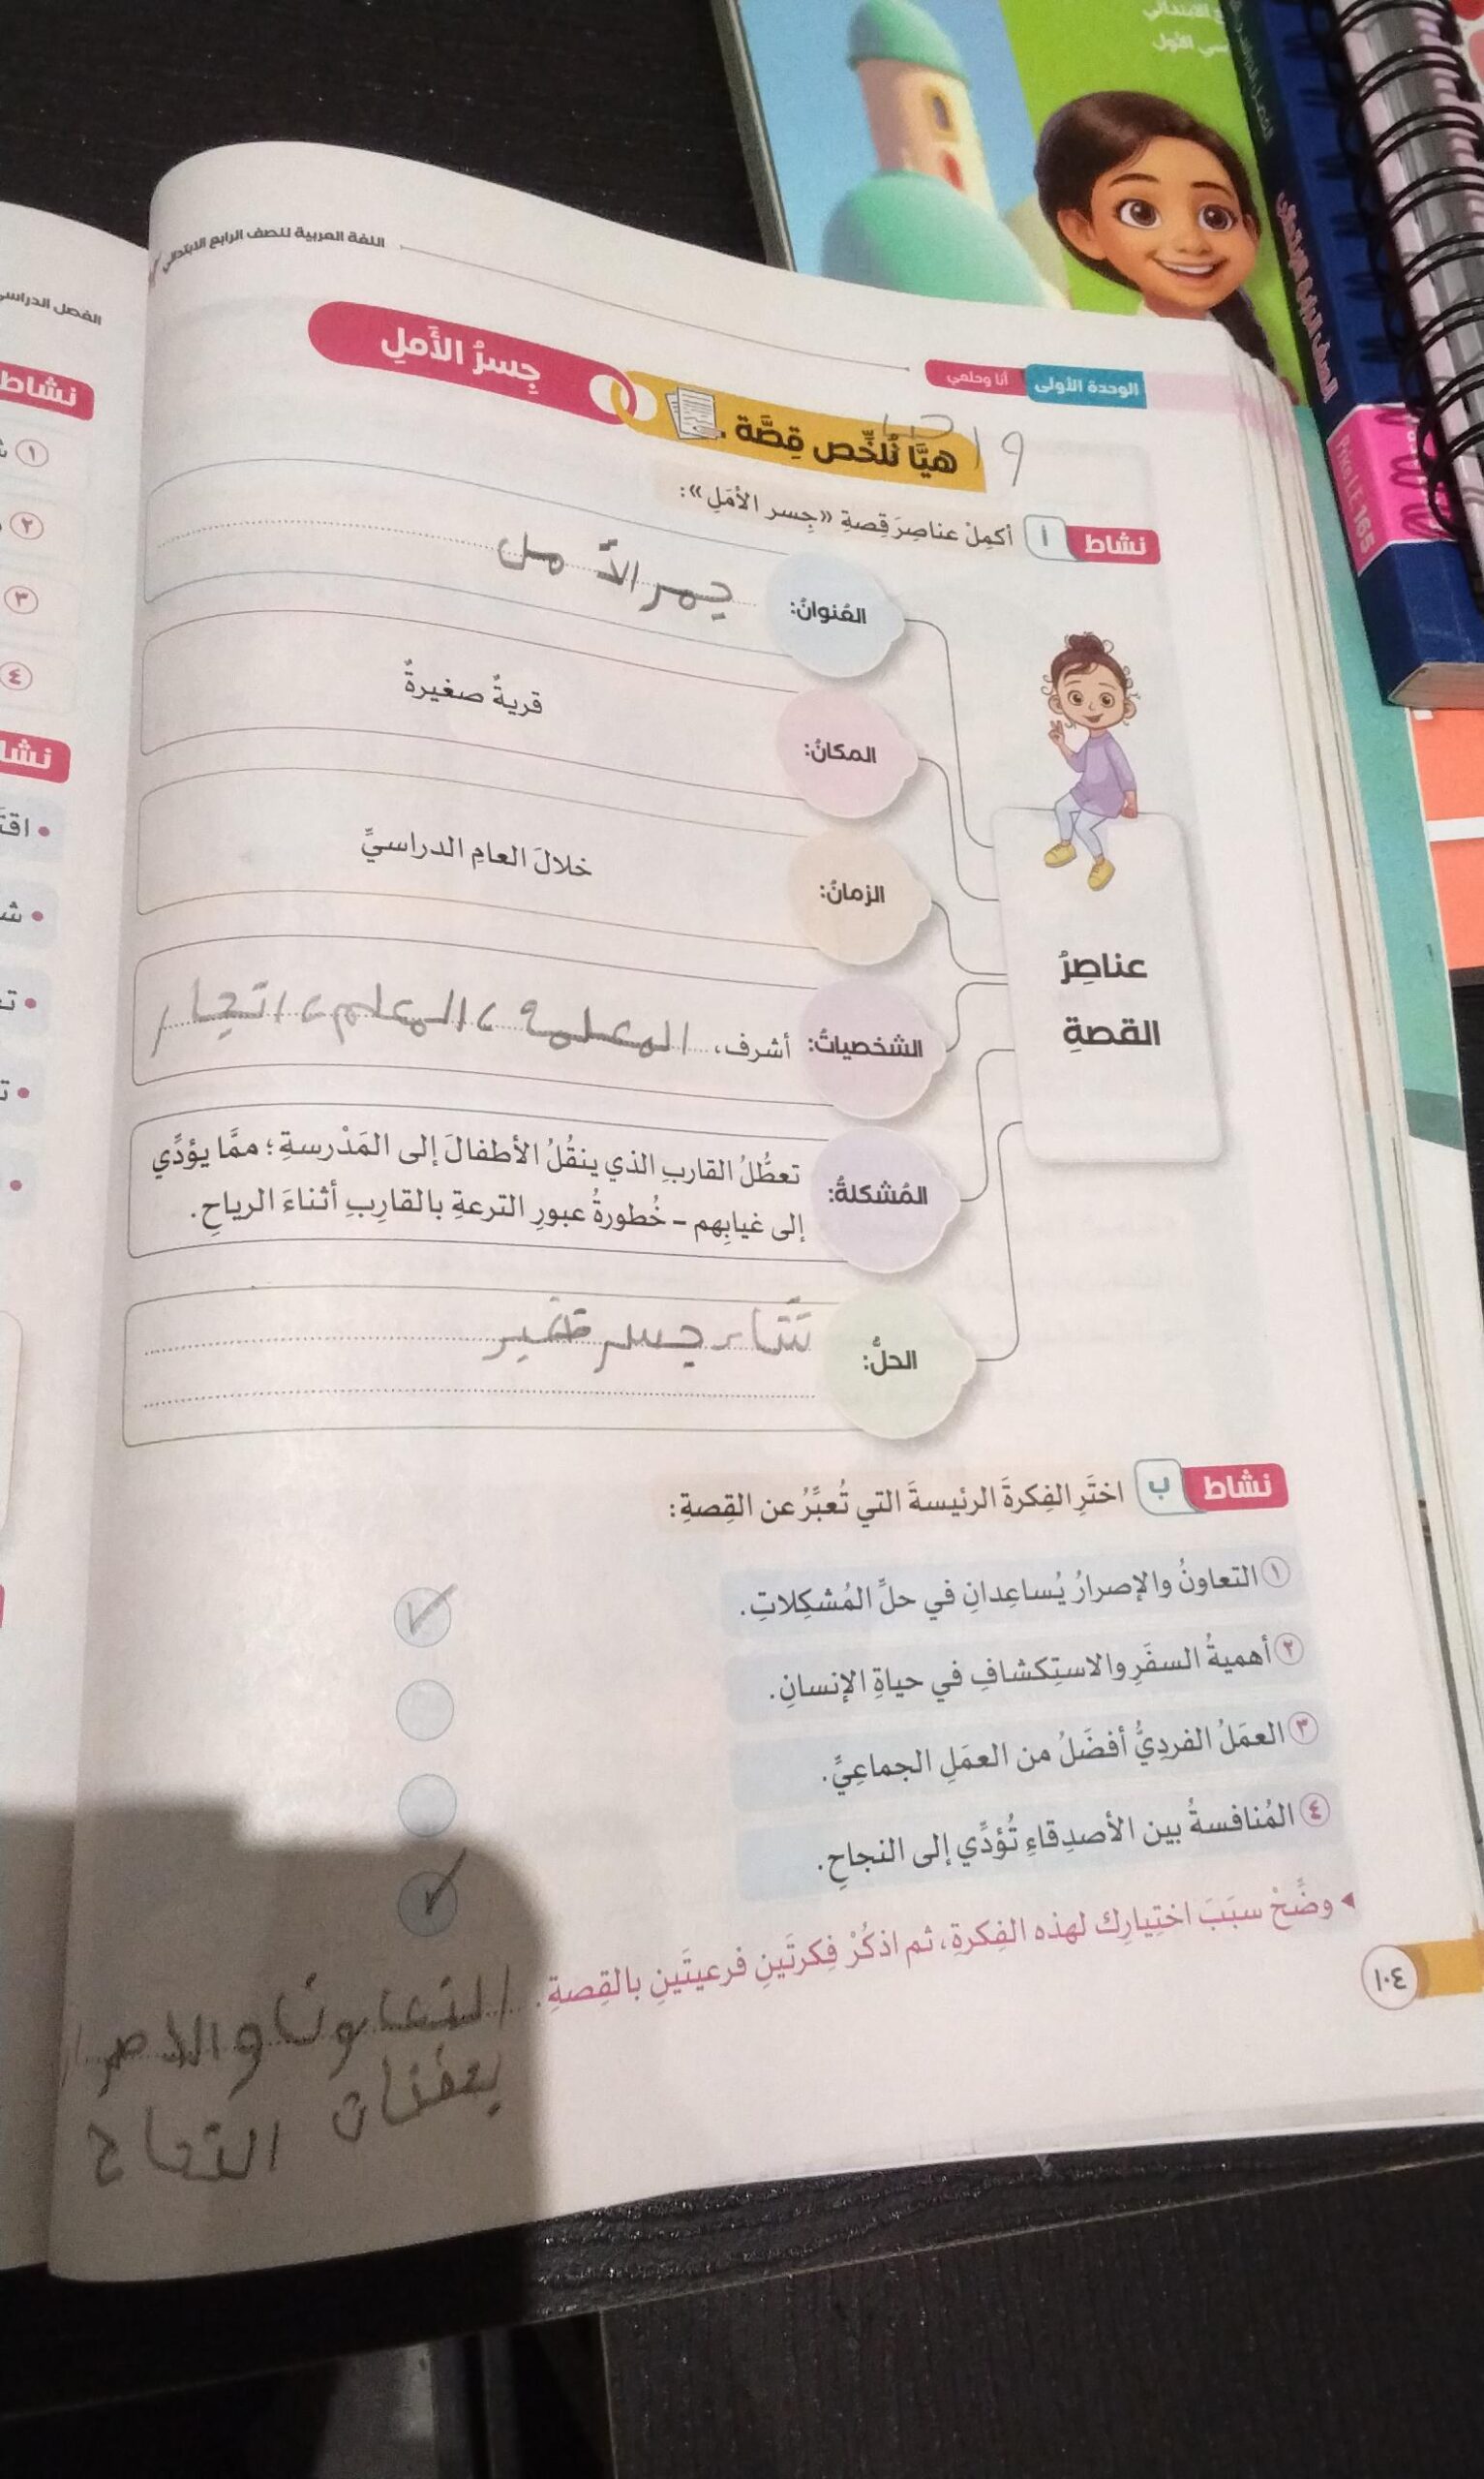 اللغة العربية للصف الرابع الابتدائي
الوحدة الأولى
أنا وحلمي
جِسرُ الأَملِ
هيَّا نُلَخِّص قِصَّة
نشاط أ أكمِلْ عناصِرَ قصةِ «جِسر الأمَلِ»:
عناصِرُ
القصةِ
العُنوانُ:
المكانُ: قريةٌ صغيرةٌ
الزمانُ: خلالَ العامِ الدراسيِّ
الشخصياتُ: أشرف، المعلمة، المعلم،
المُشكلةُ: تعطُّلُ القاربِ الذي ينقُلُ الأطفالَ إلى المَدْرسةِ؛ ممَّا يؤدِّي
إلى غيابِهم – خُطورةُ عبورِ الترعةِ بالقارِبِ أثناءَ الرياحِ.
الحلُّ: جسر
نشاط ب اختَرِ الفِكرةَ الرئيسةَ التي تُعبِّرُ عن القِصةِ:
١ التعاونُ والإصرارُ يُساعِدانِ في حلِّ المُشكِلاتِ.
٢ أهميةُ السفَرِ والاستِكشافِ في حياةِ الإنسانِ.
٣ العمَلُ الفردِيُّ أفضَلُ من العمَلِ الجماعِيِّ.
٤ المُنافسةُ بين الأصدِقاءِ تُؤدِّي إلى النجاحِ.
وضِّحْ سبَبَ اختِيارِك لهذه الفِكرةِ، ثم اذكُرْ فِكرتَينِ فرعيتَينِ بالقِصةِ.
١٠٤
الفصل الدراسي
نشاط
١
٢
٣
٤
Price LE 165